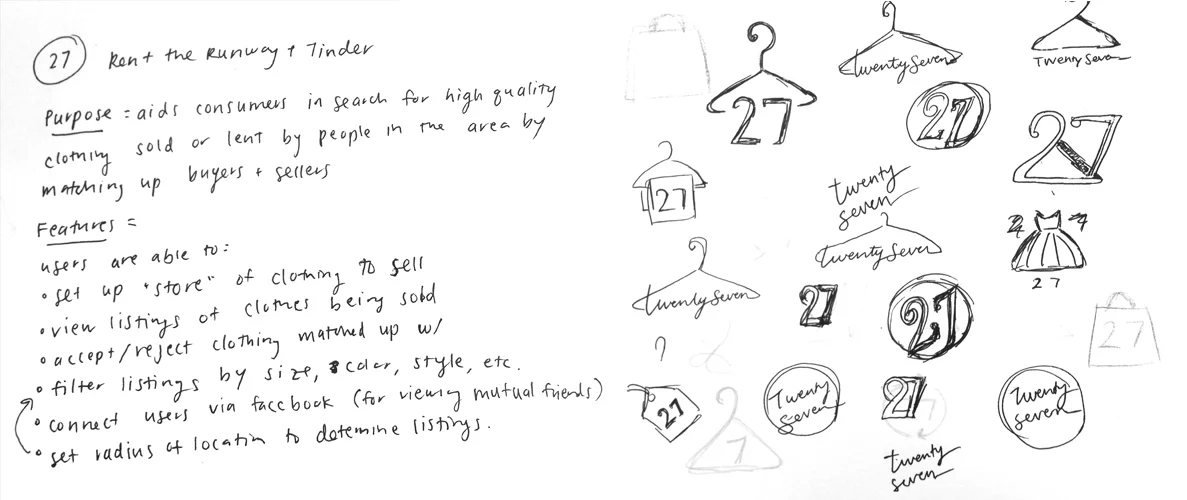 27 Rent the Runway + Tinder
Purpose = aids consumers in search for high quality
clothing sold or lent by people in the area by
matching up buyers + sellers
Features =
users are able to:
• set up "store" of clothing to sell
• view listings of clothes being sold
• accept/reject clothing matched up w/
• filter listings by size, color, style, etc.
• connect users via facebook (for viewing mutual friends)
• set radius of location to determine listings.
27
twentySeven
Twenty Seven
27
27
27
twenty
seven
twentySeven
27
twentySeven
27
27
27
27
Twenty
Seven
27
7
Twenty
seven
twenty
seven